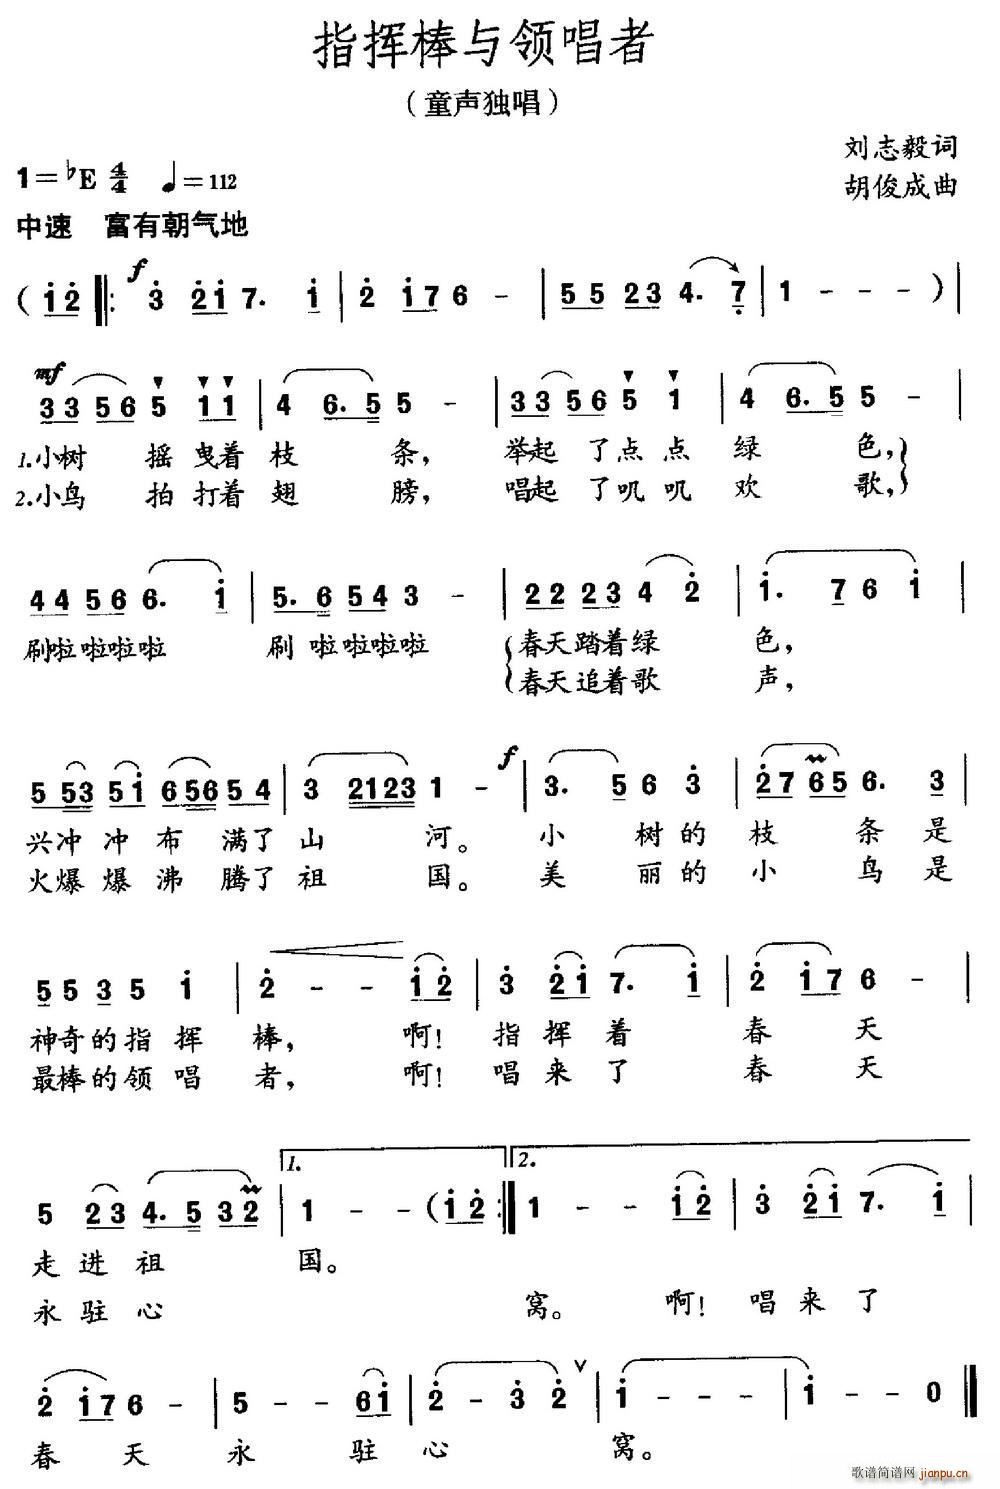 指挥棒与领唱者
（童声独唱）
刘志毅词
1=♭E 4/4 ♩=112
胡俊成曲
中速 富有朝气地
f
( i̇ 2̇ ‖: 3̇ 2̇ 1̇ 7. 1̇ | 2̇ 1̇ 7 6 - | 5 5 2 3 4. 7̣ | 1 - - - ) |
mf
3 3 5 6 5 1 1 | 4 6. 5 5 - | 3 3 5 6 5 1 | 4 6. 5 5 - |
1.小树 摇曳着枝 条， 举起了点点绿 色，
2.小鸟 拍打着翅 膀， 唱起了叽叽欢 歌，
4 4 5 6 6. 1̇ | 5. 6 5 4 3 - | 2 2 2 3 4 2̇ | 1̇. 7 6 1̇ |
刷啦啦啦啦 刷啦啦啦啦 春天踏着绿 色，
春天追着歌 声，
5 5 3 5 1̇ 6 5 6 5 4 | 3 2 1 2 3 1 - | f 3. 5 6 3̇ | 2̇ 7 6 5 6. 3 |
兴冲冲布满了山 河。 小树的枝 条是
火爆爆沸腾了祖 国。 美丽的小 鸟是
5 5 3 5 1̇ | 2̇ - - 1̇ 2̇ | 3̇ 2̇ 1̇ 7. 1̇ | 2̇ 1̇ 7 6 - |
神奇的指挥棒， 啊！指挥着 春天
最棒的领唱者， 啊！唱来了 春天
1. 2.
5 2 3 4. 5 3 2 | 1 - - ( 1̇ 2̇ :‖ 1 - - 1̇ 2̇ | 3̇ 2̇ 1̇ 7. 1̇ |
走进祖 国。
永驻心 窝。 啊！唱来了
2̇ 1̇ 7 6 - | 5 - - 6 1̇ | 2̇ - 3̇ 2̇ ∨ | 1̇ - - - | 1̇ - 0 ‖
春天永 驻心 窝。
歌谱简谱网 jianpu.cn